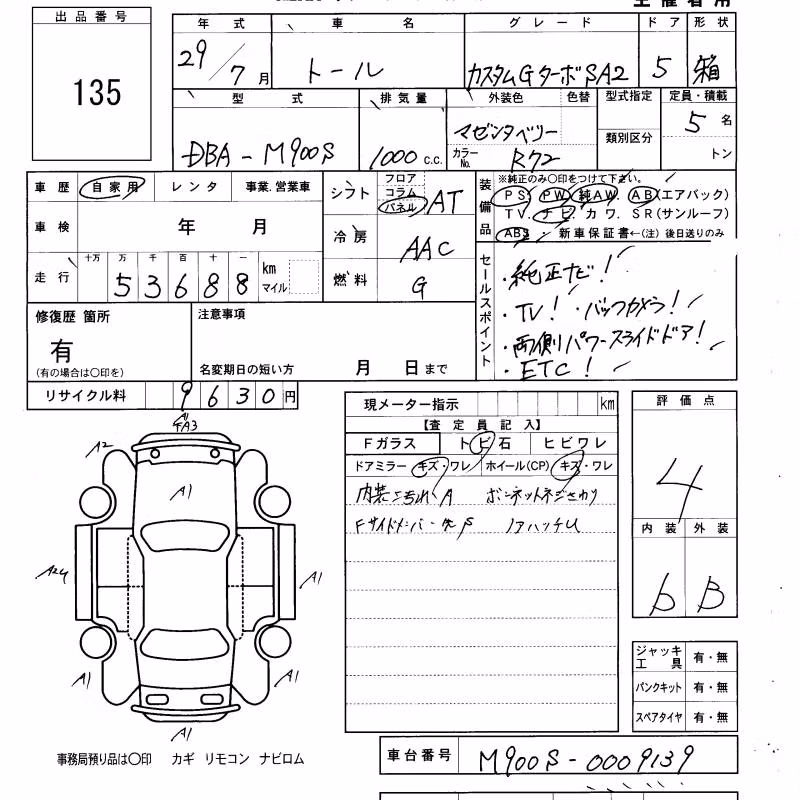 主催者用
出品番号
135
年式 車名 グレード ドア 形状
29/7月 トール カスタムGターボSA2 5 箱
型式 排気量 外装色 色替 型式指定 定員・積載
DBA-M900S 1000 c.c. マゼンタベリー 類別区分 5名
カラーNo. R72 トン
車歴 自家用 レンタ 事業.営業車
シフト フロア コラム パネル AT
装備品 ※純正のみ○印をつけて下さい。
PS. PW. 純AW. AB(エアバック)
TV. ナビ. カワ. SR(サンルーフ)
ABS. 新車保証書←(注) 後日送りのみ
車検 年 月
冷房 AAC
走行 十万 万 千 百 十 一
53688 km マイル
燃料 G
セールスポイント
・純正ナビ!
・TV! ・バックカメラ!
・両側パワースライドドア!
・ETC!
修復歴 箇所
有
(有の場合は○印を)
注意事項
名変期日の短い方 月 日まで
リサイクル料 9630円
現メーター指示 km
【査定員記入】
Fガラス トビ石 ヒビワレ
ドアミラー キズ・ワレ ホイール(CP) キズ・ワレ
内装こちれA ボンネットネジさわり
評価点
4
内装 外装
b B
FA3
A2
A1
A1
A1
A1
A1
ジャッキ工具 有・無
パンクキット 有・無
スペアタイヤ 有・無
事務局預り品は○印 カギ リモコン ナビロム
車台番号 M900S-0009139